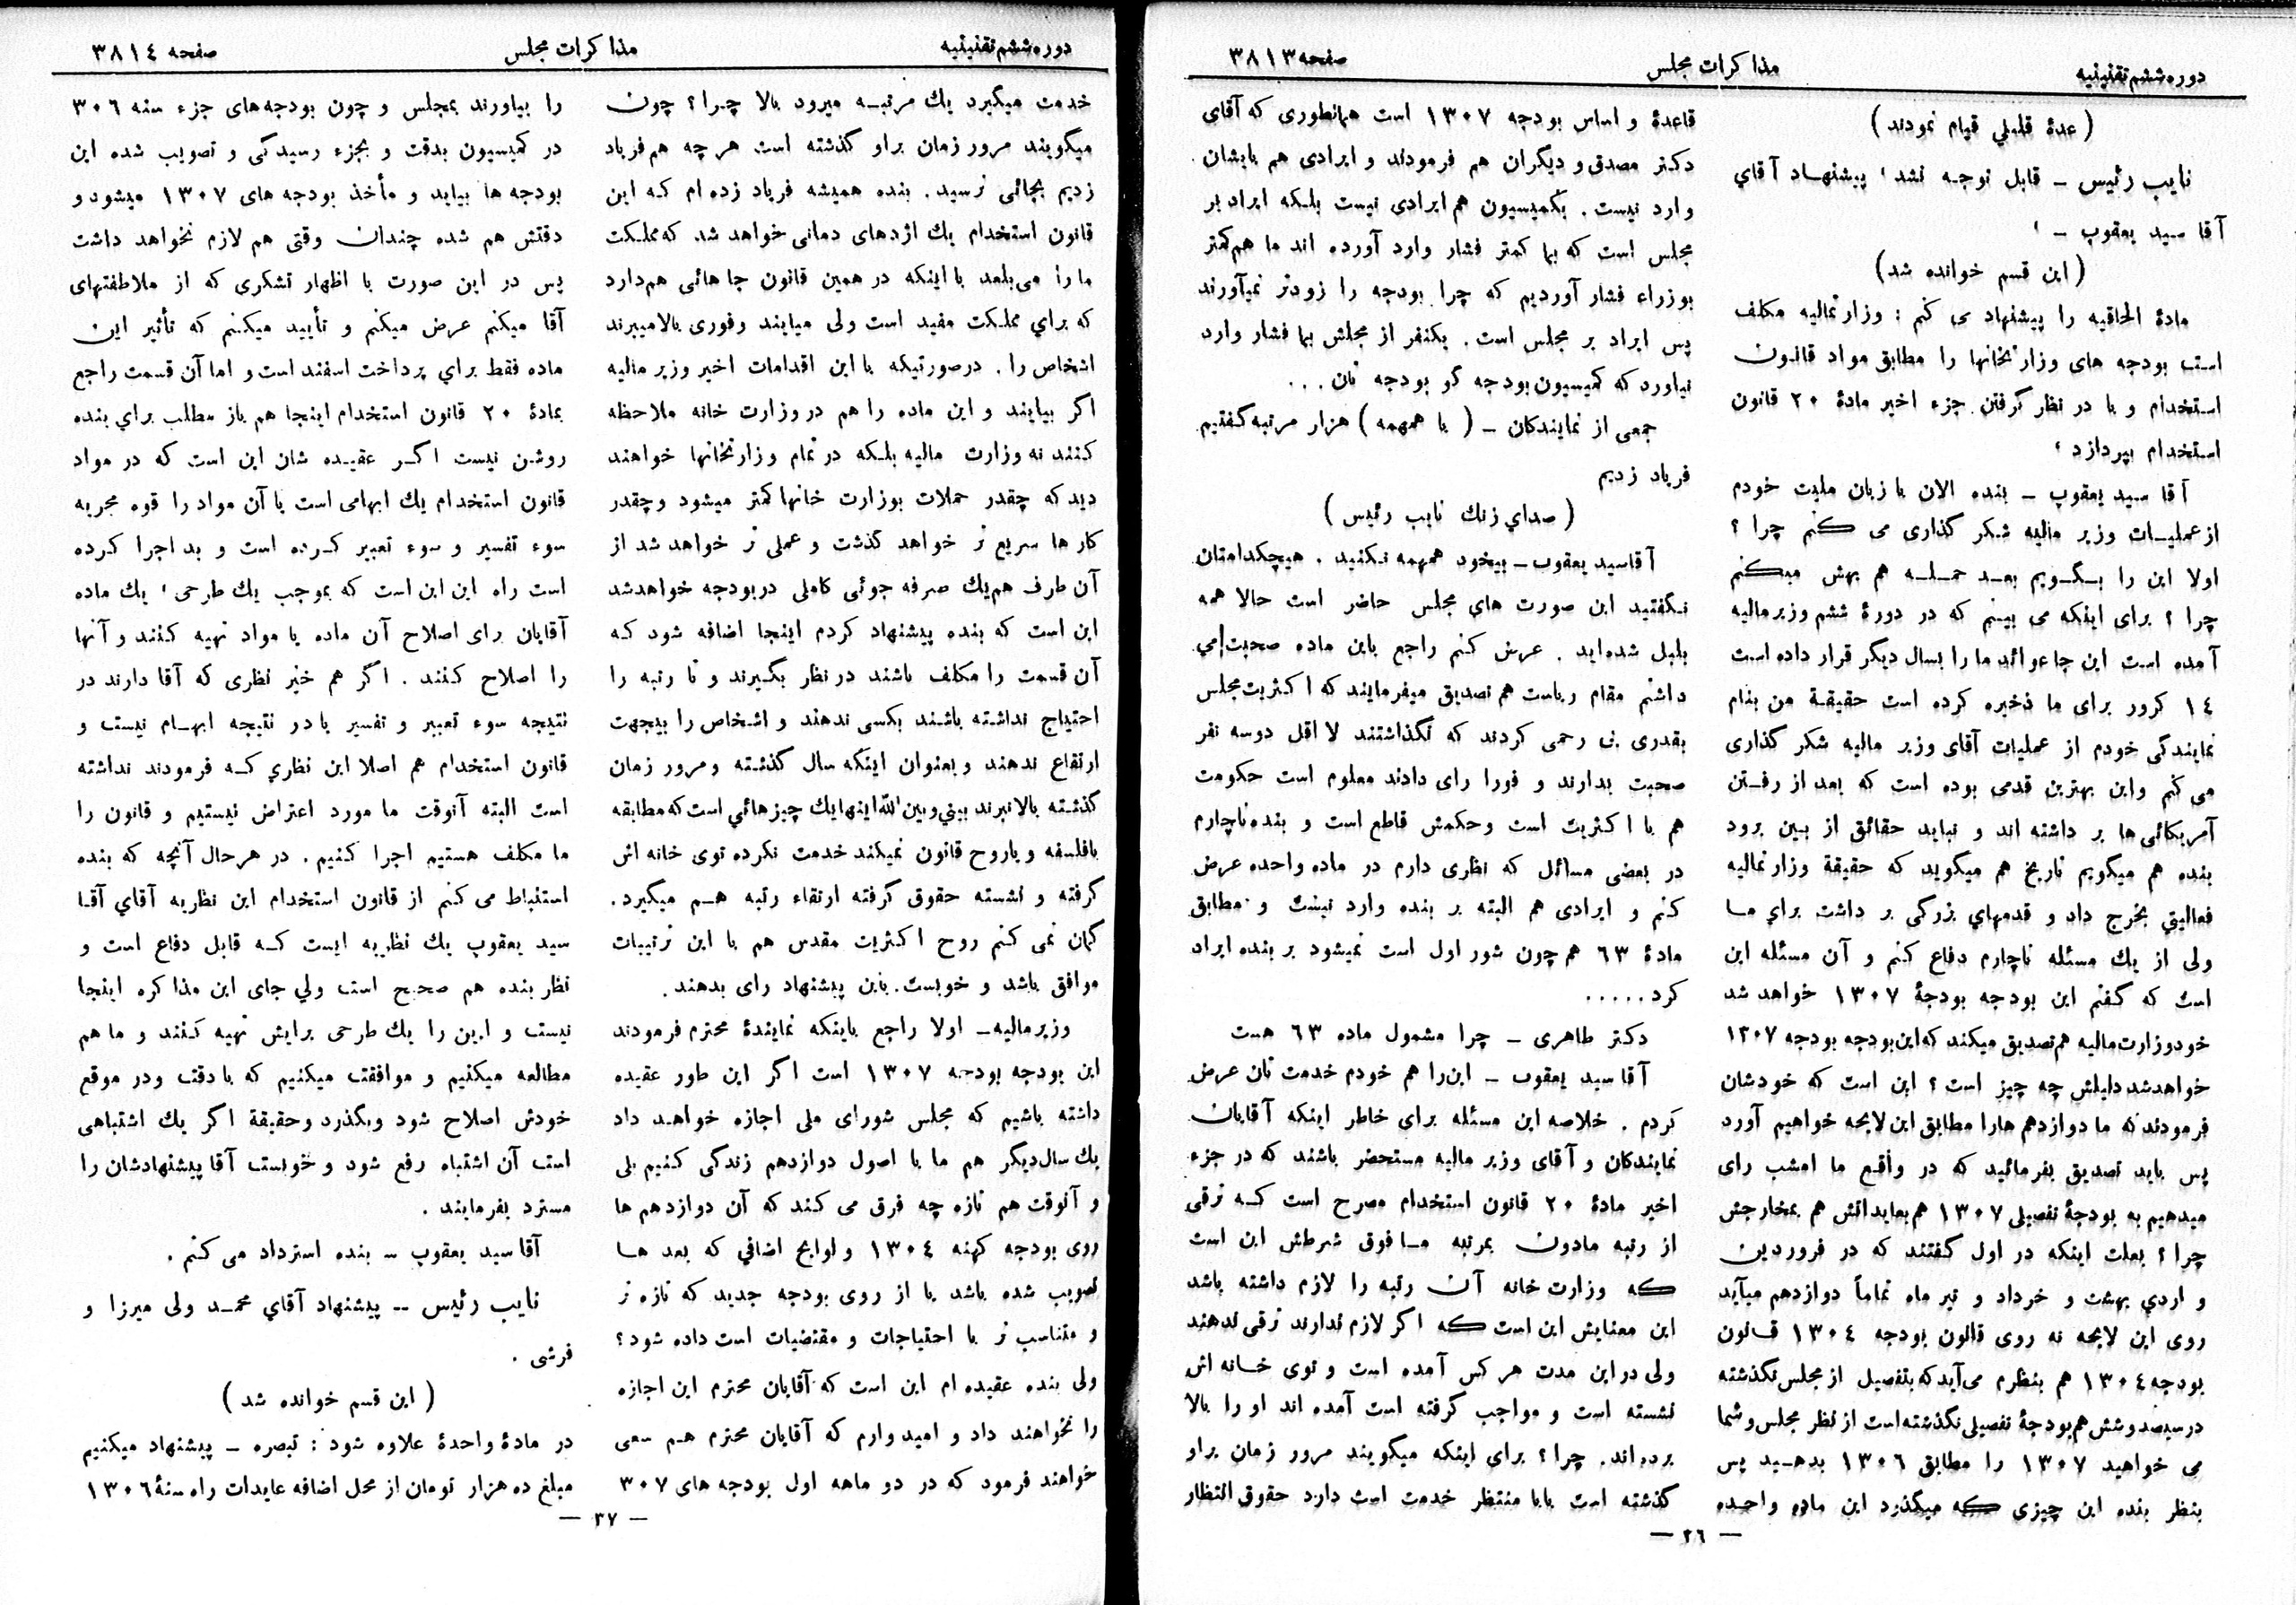 دوره ششم تقنینیه
مذاکرات مجلس
صفحه ۳۸۱۳
(عدهٔ قلیلی قیام نمودند)
نایب رئیس ـ قابل توجه نشد، پیشنهاد آقای
آقا سید یعقوب ـ ،
(این قسم خوانده شد)
مادهٔ الحاقیه را پیشنهاد می کنم : وزارتمالیه مکلف
است بودجه های وزارتخانها را مطابق مواد قانون
استخدام و با در نظر گرفتن جزء اخیر مادهٔ ۲۰ قانون
استخدام بپردازد ،
آقا سید یعقوب ـ بنده الان با زبان ملیت خودم
از عملیات وزیر مالیه شکر گذاری می کنم چرا ؟
اولا این را بگویم بعد حمله هم بهش میکنم
چرا ؟ برای اینکه می بینم که در دورهٔ ششم وزیر مالیه
آمده است این جا عوائد ما را بسال دیگر قرار داده است
۱۴ کرور برای ما ذخیره کرده است حقیقة من بنام
نمایندگی خودم از عملیات آقای وزیر مالیه شکر گذاری
می کنم و این بهترین قدمی بوده است که بعد از رفتن
آمریکائی ها بر داشته اند و نباید حقائق از بین برود
بنده هم میگویم تاریخ هم میگوید که حقیقة وزارتمالیه
فعالیتی بخرج داد و قدمهای بزرگی بر داشت برای ما
ولی از یك مسئله ناچارم دفاع کنم و آن مسئله این
است که گفتم این بودجه بودجهٔ ۱۳۰۷ خواهد شد
خود وزارت مالیه هم تصدیق میکند که این بودجه بودجه ۱۳۰۷
خواهد شد دلیلش چه چیز است ؟ این است که خودشان
فرمودند که ما دوازدهم هارا مطابق این لایحه خواهیم آورد
پس باید تصدیق بفرمائید که در واقع ما امشب رای
میدهیم به بودجهٔ تفصیلی ۱۳۰۷ هم بعایداتش هم بمخارجش
چرا ؟ بعلت اینکه در اول گفتند که در فروردین
و اردی بهشت و خرداد و تیر ماه تماماً دوازدهم میآید
روی این لایحه نه روی قانون بودجه ۱۳۰۴ قانون
بودجه ۱۳۰۴ هم بنظرم می آید که بتفصیل از مجلس نگذشته
در سیصد و شش هم بودجهٔ تفصیلی نگذشته است از نظر مجلس و شما
می خواهید ۱۳۰۷ را مطابق ۱۳۰۶ بدهید پس
بنظر بنده این چیزی که میگذرد این ماده واحده
قاعدهٔ و اساس بودجه ۱۳۰۷ است همانطوری که آقای
دکتر مصدق و دیگران هم فرمودند و ایرادی هم بایشان
وارد نیست . بکمیسیون هم ایرادی نیست بلکه ایراد بر
مجلس است که بما کمتر فشار وارد آورده اند ما هم کمتر
بوزراء فشار آوردیم که چرا بودجه را زودتر نمیآورند
پس ایراد بر مجلس است . یکنفر از مجلس بما فشار وارد
نیاورد که کمیسیون بودجه کو بودجه تان . . .
جمعی از نمایندکان ـ ( با همهمه ) هزار مرتبه گفتیم
فریاد زدیم
( صدای زنك نایب رئیس )
آقاسید یعقوب ـ بیخود همهمه نکنید . هیچکدامتان
نگفتید این صورت های مجلس حاضر است حالا همه
بلبل شده اید . عرض کنم راجع باین ماده صحبت می
داشتم مقام ریاست هم تصدیق میفرمایند که اکثریت مجلس
بقدری بی رحمی کردند که نگذاشتند لا اقل دو سه نفر
صحبت بدارند و فورا رای دادند معلوم است حکومت
هم با اکثریت است و حکمش قاطع است و بنده ناچارم
در بعضی مسائل که نظری دارم در ماده واحده عرض
کنم و ایرادی هم البته بر بنده وارد نیست و مطابق
مادهٔ ۶۳ هم چون شور اول است نمیشود بر بنده ایراد
کرد . . . . .
دکتر طاهری ـ چرا مشمول ماده ۶۳ هست
آقا سید یعقوب ـ این را هم خودم خدمت تان عرض
کردم . خلاصه این مسئله برای خاطر اینکه آقایان
نمایندکان و آقای وزیر مالیه مستحضر باشند که در جزء
اخیر مادهٔ ۲۰ قانون استخدام مصرح است که ترقی
از رتبه مادون بمرتبه ما فوق شرطش این است
که وزارت خانه آن رتبه را لازم داشته باشد
این معنایش این است که اگر لازم ندارند ترقی ندهند
ولی در این مدت هر کس آمده است و توی خانه اش
نشسته است و مواجب گرفته است آمده اند او را بالا
برده اند . چرا ؟ برای اینکه میگویند مرور زمان براو
گذشته است بابا منتظر خدمت است دارد حقوق انتظار
ـ ۲۶ ـ
دوره ششم تقنینیه
مذاکرات مجلس
صفحه ۳۸۱۴
خدمت میگیرد یك مرتبه میرود بالا چرا ؟ چون
میگویند مرور زمان براو گذشته است هر چه هم فریاد
زدیم بجائی نرسید . بنده همیشه فریاد زده ام که این
قانون استخدام یك اژدهای دمانی خواهد شد که مملکت
ما را می بلعد با اینکه در همین قانون جا هائی هم دارد
که برای مملکت مفید است ولی میایند و فوری بالا میبرند
اشخاص را . درصورتیکه با این اقدامات اخیر وزیر مالیه
اگر بیایند و این ماده را هم در وزارت خانه ملاحظه
کنند نه وزارت مالیه بلکه در تمام وزارتخانها خواهند
دید که چقدر حملات بوزارت خانها کمتر میشود و چقدر
کار ها سریع تر خواهد گذشت و عملی تر خواهد شد از
آن طرف هم یك صرفه جوئی کاملی در بودجه خواهد شد
این است که بنده پیشنهاد کردم اینجا اضافه شود که
آن قسمت را مکلف باشند در نظر بگیرند و تا رتبه را
احتیاج نداشته باشند بکسی ندهند و اشخاص را بیجهت
ارتقاع ندهند و بعنوان اینکه سال گذشته و مرور زمان
گذشته بالا نبرند بینی و بین الله اینها یك چیز هائی است که مطابقه
با فلسفه و با روح قانون نمیکند خدمت نکرده توی خانه اش
گرفته و نشسته حقوق گرفته ارتقاء رتبه هم میگیرد .
گمان نمی کنم روح اکثریت مقدس هم با این ترتیبات
موافق باشد و خوبست . باین پیشنهاد رای بدهند .
وزیر مالیه ـ اولا راجع باینکه نمایندهٔ محترم فرمودند
این بودجه بودجه ۱۳۰۷ است اگر این طور عقیده
داشته باشیم که مجلس شورای ملی اجازه خواهد داد
یك سال دیگر هم ما با اصول دوازدهم زندگی کنیم بلی
و آنوقت هم تازه چه فرق می کند که آن دوازدهم ها
روی بودجه کهنه ۱۳۰۴ و لوایح اضافی که بعد ها
تصویب شده باشد یا از روی بودجه جدید که تازه تر
و متناسب تر با احتیاجات و مقتضیات است داده شود ؟
ولی بنده عقیده ام این است که آقایان محترم این اجازه
را نخواهند داد و امیدوارم که آقایان محترم هم سعی
خواهند فرمود که در دو ماهه اول بودجه های ۳۰۷
را بیاورند بمجلس و چون بودجه های جزء سنه ۳۰۶
در کمیسیون بدقت و بجزء رسیدگی و تصویب شده این
بودجه ها بیاید و مأخذ بودجه های ۱۳۰۷ میشود و
دقتش هم شده چندان وقتی هم لازم نخواهد داشت
پس در این صورت با اظهار تشکری که از ملاطفتهای
آقا میکنم عرض میکنم و تأیید میکنم که تأثیر این
ماده فقط برای پرداخت اسفند است و اما آن قسمت راجع
بمادهٔ ۲۰ قانون استخدام اینجا هم باز مطلب برای بنده
روشن نیست اگر عقیده شان این است که در مواد
قانون استخدام یك ابهامی است یا آن مواد را قوه مجریه
سوء تفسیر و سوء تعبیر کرده است و بد اجرا کرده
است راه این این است که بموجب یك طرحی ، یك ماده
آقایان برای اصلاح آن ماده یا مواد تهیه کنند و آنها
را اصلاح کنند . اگر هم خیر نظری که آقا دارند در
نتیجه سوء تعبیر و تفسیر یا در نتیجه ابهام نیست و
قانون استخدام هم اصلا این نظری که فرمودند نداشته
است البته آنوقت ما مورد اعتراض نیستیم و قانون را
ما مکلف هستیم اجرا کنیم . در هرحال آنچه که بنده
استنباط می کنم از قانون استخدام این نظریه آقای آقا
سید یعقوب یك نظریه ایست که قابل دفاع است و
نظر بنده هم صحیح است ولی جای این مذاکره اینجا
نیست و این را یك طرحی برایش تهیه کنند و ما هم
مطالعه میکنیم و موافقت میکنیم که با دقت و در موقع
خودش اصلاح شود و بگذرد و حقیقة اگر یك اشتباهی
است آن اشتباه رفع شود و خوبست آقا پیشنهادشان را
مسترد بفرمایند .
آقا سید یعقوب ـ بنده استرداد می کنم .
نایب رئیس ـ پیشنهاد آقای محمد ولی میرزا و
فرشی .
( این قسم خوانده شد )
در مادهٔ واحدهٔ علاوه شود : تبصره ـ پیشنهاد میکنیم
مبلغ ده هزار تومان از محل اضافه عایدات راه سنهٔ ۱۳۰۶
ـ ۲۷ ـ